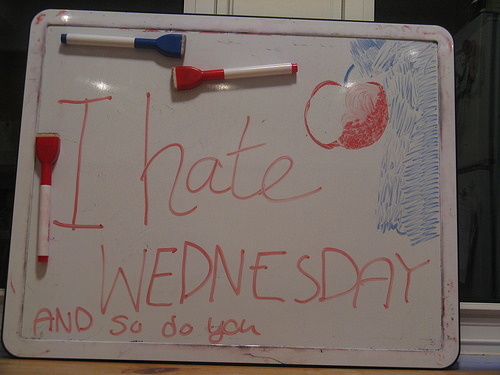 I hate
WEDNESDAY
AND so do you